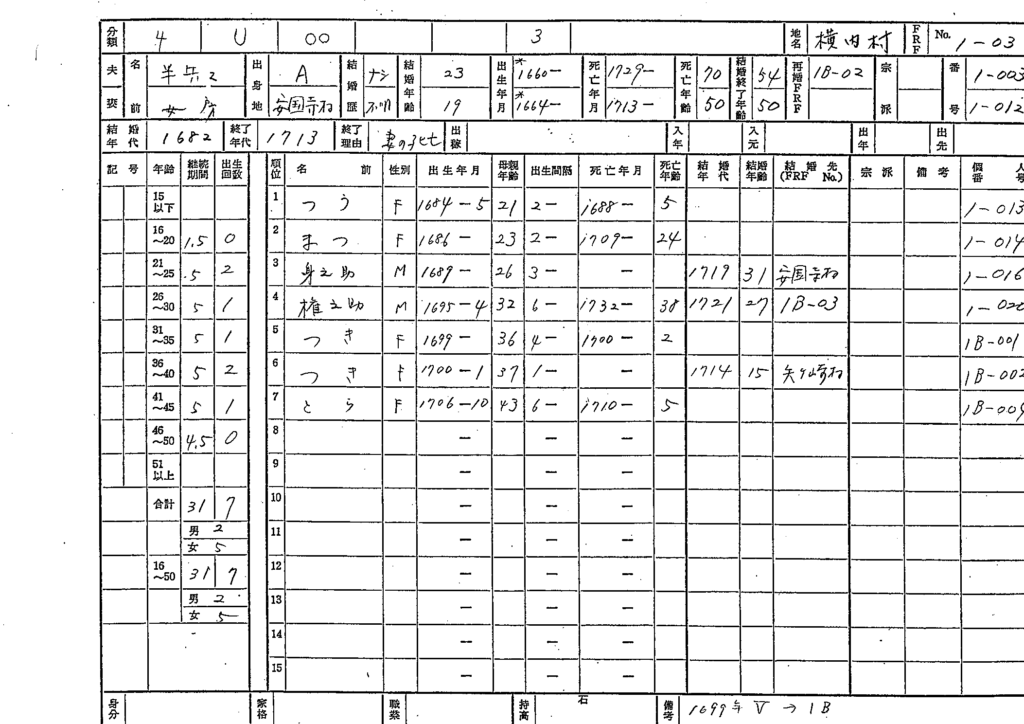 分類 4 U 00 3 地名 横内村 FRF No. 1-03
夫 名 半兵ヱ 出身地 A 結婚歴 ナシ 結婚年齢 23 出生年月 *1660- 死亡年月 1729- 死亡年齢 70 結婚終了年齢 54 再婚FRF 1B-02 宗派 番号 1-003
妻 前 女房 安国寺村 不明 19 *1664- 1713- 50 50 1-012
結婚年代 1682 終了年代 1713 終了理由 妻の死亡 出稼 入年 入元 出年 出先
記号 年齢 継続期間 出生回数 順位 名前 性別 出生年月 母親年齢 出生間隔 死亡年月 死亡年齢 結婚年代 結婚年齢 結婚先(FRF No.) 宗派 備考 個人番号
15以下 1 つう F 1684-5 21 2- 1688- 5 1-013
16~20 1.5 0 2 まつ F 1686- 23 2- 1709- 24 1-014
21~25 .5 2 3 身之助 M 1689- 26 3- - 1719 31 安国寺村 1-016
26~30 5 1 4 権之助 M 1695-4 32 6- 1732- 38 1721 27 1B-03 1-020
31~35 5 1 5 つき F 1699- 36 4- 1700- 2 1B-001
36~40 5 2 6 つき F 1700-1 37 1- - 1714 15 矢ケ崎村 1B-002
41~45 5 1 7 とら F 1706-10 43 6- 1710- 5 1B-009
46~50 4.5 0 8 - - -
51以上 9 - - -
合計 31 7 10 - - -
男 2 11 - - -
女 5
16~50 31 7 12 - - -
男 2 13 - - -
女 5
14 - - -
15 - - -
身分 家格 職業 持高 石 備考 1699年 V → 1B